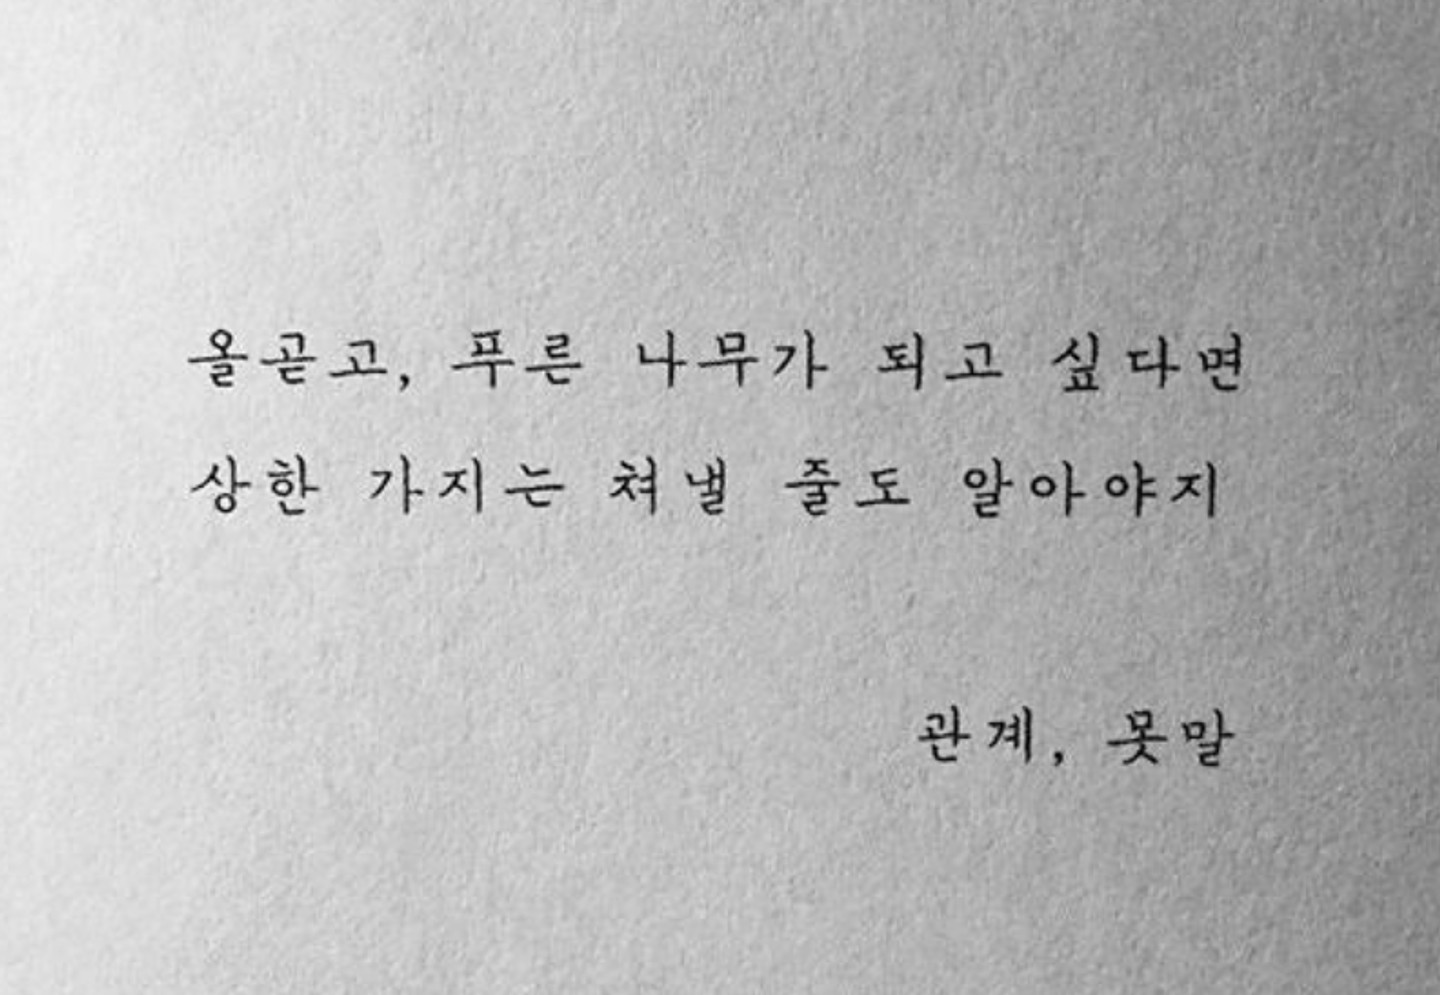 올곧고, 푸른 나무가 되고 싶다면
상한 가지는 쳐낼 줄도 알아야지
관계, 못말